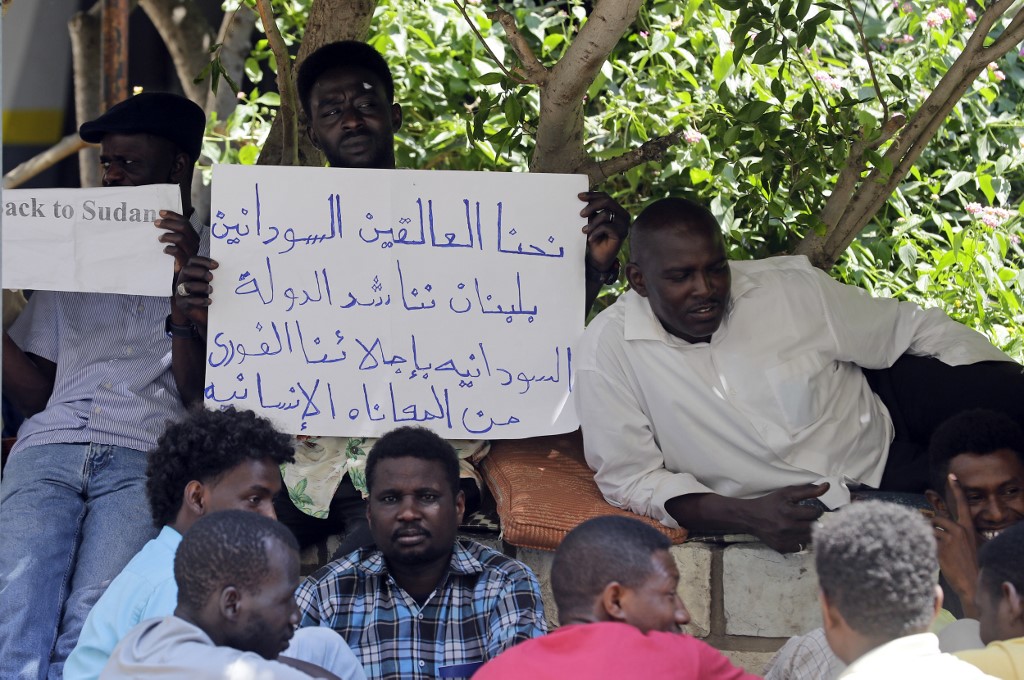 Back to Sudan
نحنا العالقين السودانين
بلبنان نناشد الدولة
السودانيه بإجلائنا الفوري
من المعاناه الإنسانيه